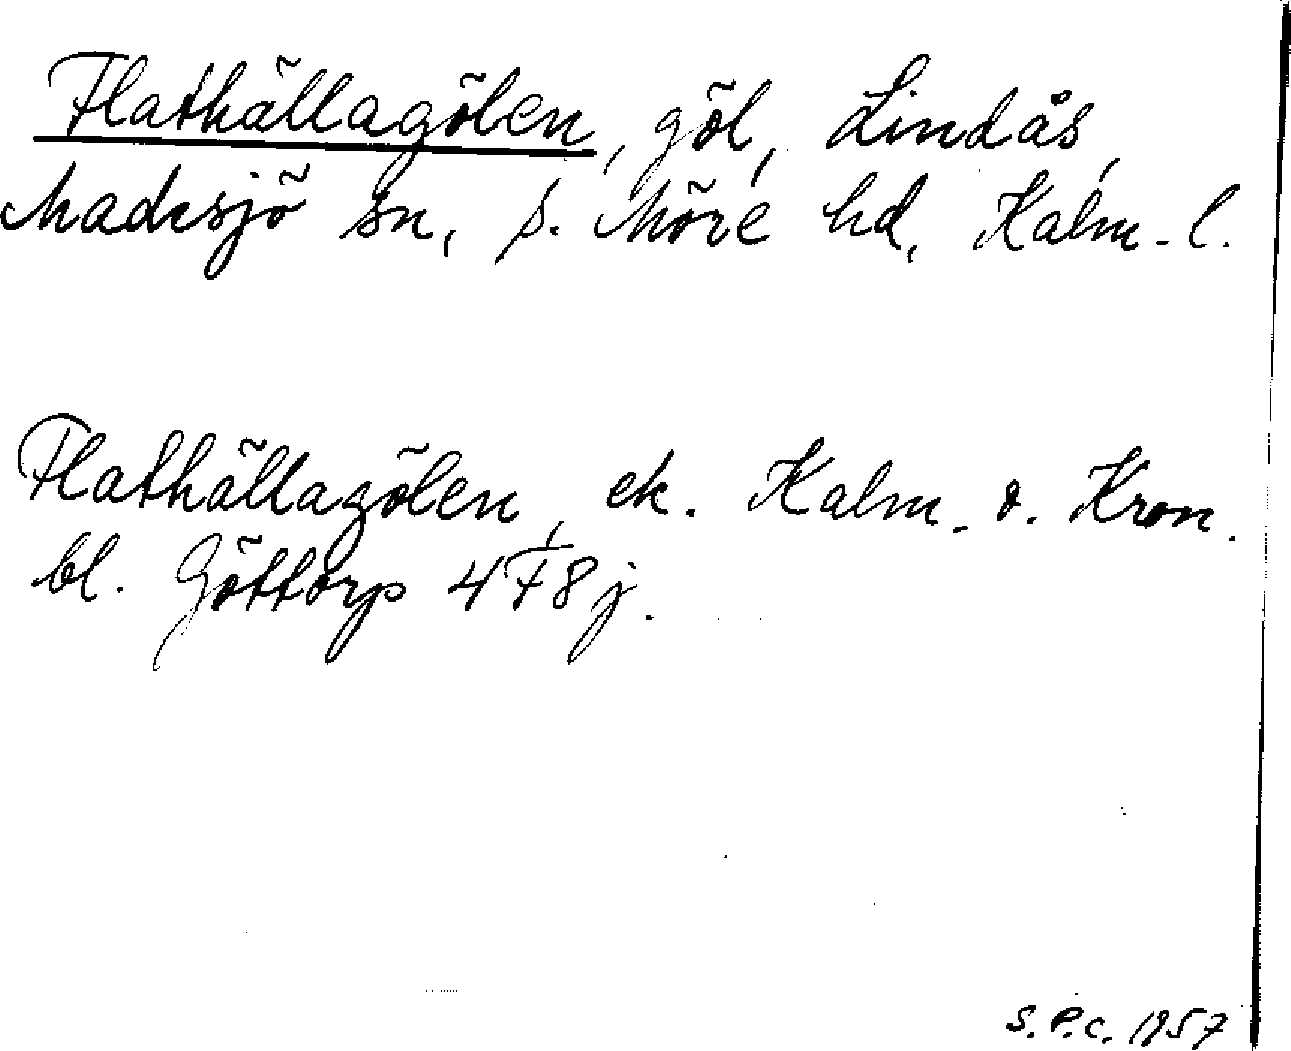 Flathällagölen, göl, Lindås,
Madesjö sn, s. Möre hd, Kalm. l.
Flathällagölen, ek. Kalm. o. Kron.
bl. Göttorp 4F8j.
S.P.C. 1957